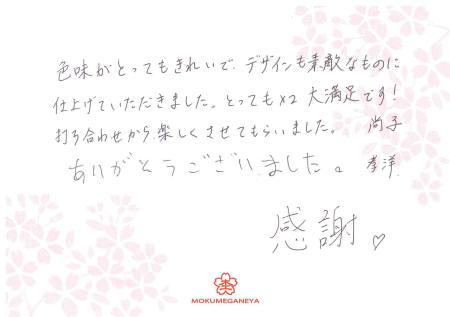 色味がとってもきれいで、デザインも素敵なものに
仕上げていただきました。とっても×2 大満足です！
打ち合わせから楽しくさせてもらいました。 尚子
ありがとうございました。 孝洋
感謝♡
MOKUMEGANEYA